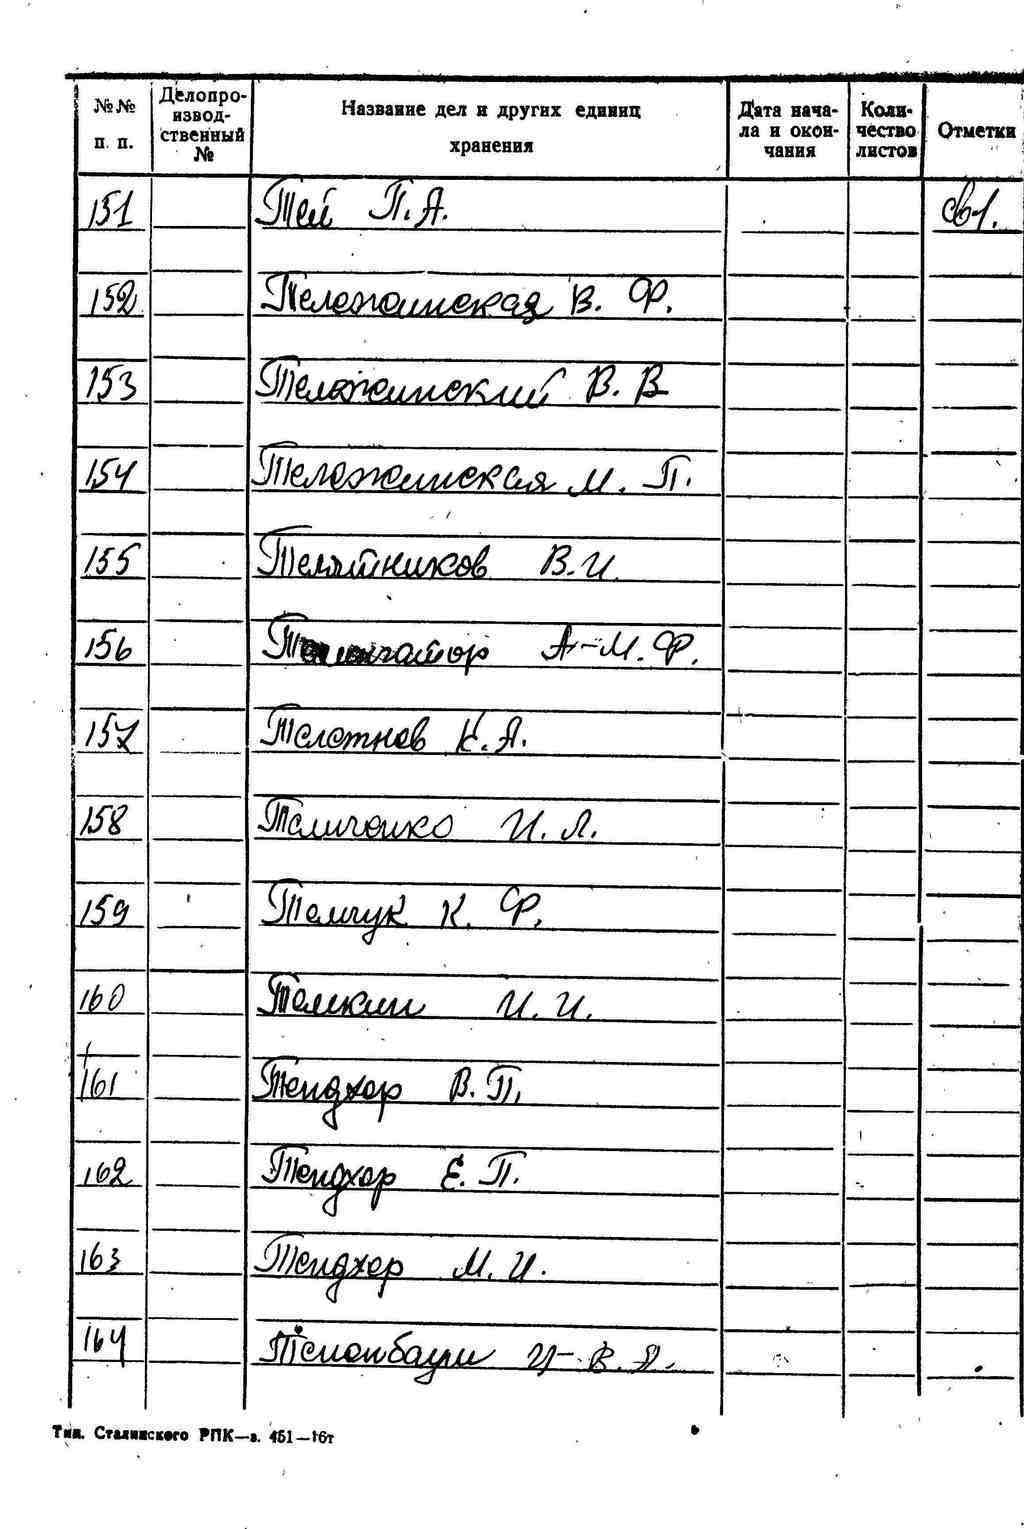 №№ п. п. Делопроизвод-ственный № Название дел и других единиц хранения Дата нача-ла и окон-чания Коли-чество листов Отметки
151 Тей П.А. св1.
152 Тележинская В. Ф.
153 Тележинский В. В
154 Тележинская М. П.
155 Телятников В.И.
156 А-М. Ф.
157 Телетнев К.А.
158 Темченко И. Л.
159 Темчук К. Ф.
160 Темкин И. И.
161 Тендхер В. П.
162 Тендхер Е. П.
163 Тендхер М. И.
164 Тененбаум И-В.Я.
Тип. Сталинского РПК—з. 451—16т